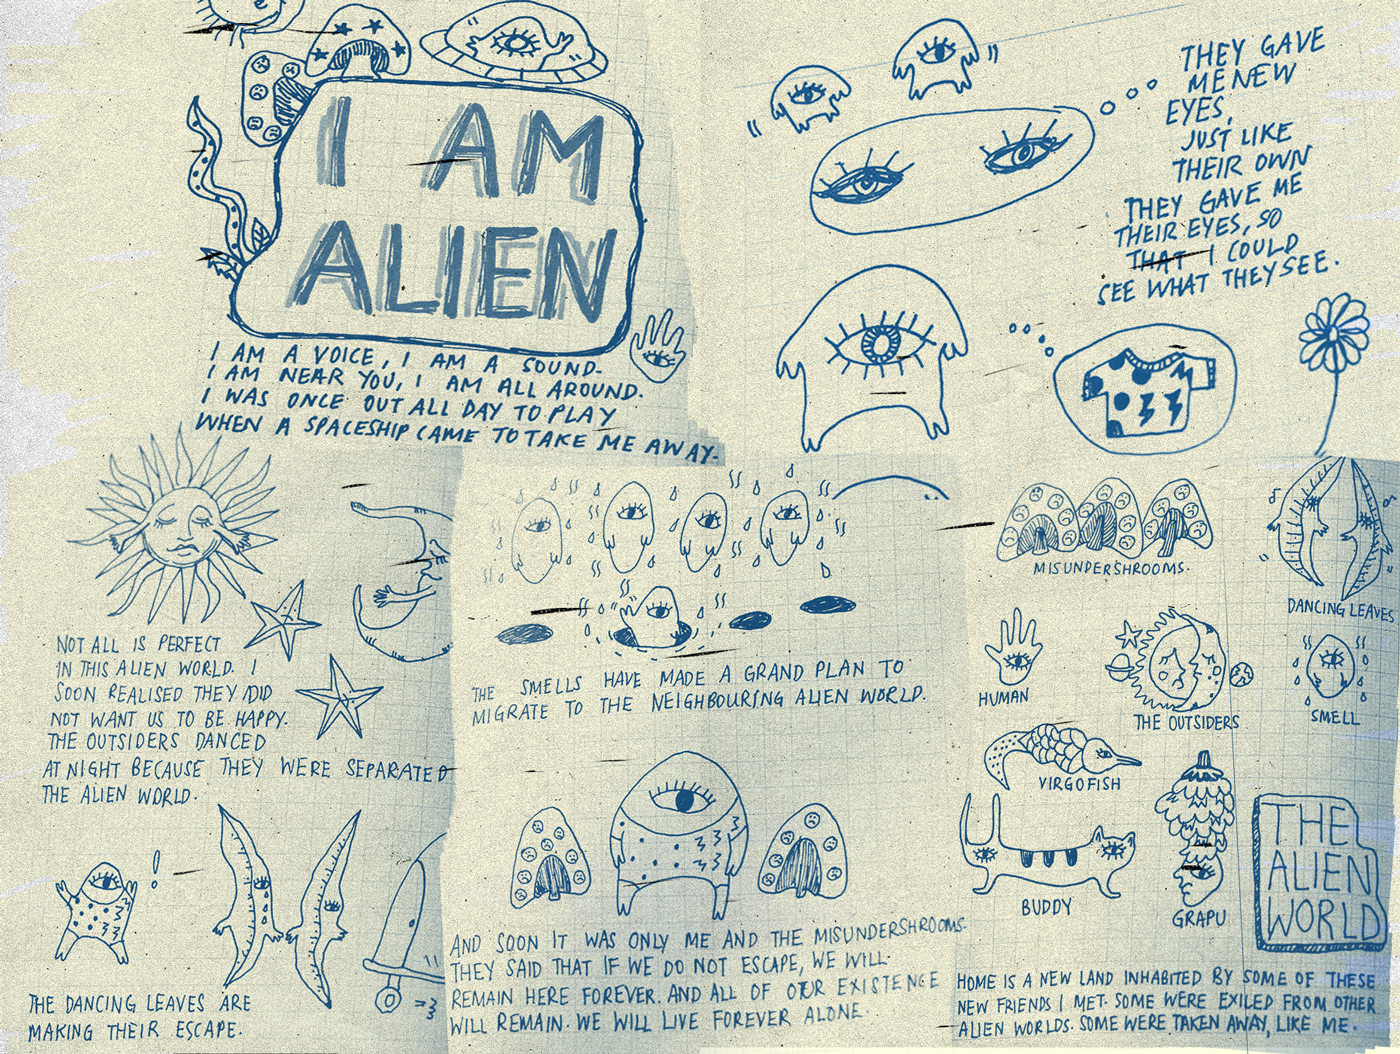 I AM
ALIEN
I AM A VOICE, I AM A SOUND.
I AM NEAR YOU, I AM ALL AROUND.
I WAS ONCE OUT ALL DAY TO PLAY
WHEN A SPACESHIP CAME TO TAKE ME AWAY.
THEY GAVE
ME NEW
EYES,
JUST LIKE
THEIR OWN
THEY GAVE ME
THEIR EYES, SO
THAT I COULD
SEE WHAT THEY SEE.
NOT ALL IS PERFECT
IN THIS ALIEN WORLD. I
SOON REALISED THEY DID
NOT WANT US TO BE HAPPY.
THE OUTSIDERS DANCED
AT NIGHT BECAUSE THEY WERE SEPARATED
THE ALIEN WORLD.
!
THE DANCING LEAVES ARE
MAKING THEIR ESCAPE.
THE SMELLS HAVE MADE A GRAND PLAN TO
MIGRATE TO THE NEIGHBOURING ALIEN WORLD.
AND SOON IT WAS ONLY ME AND THE MISUNDERSHROOMS.
THEY SAID THAT IF WE DO NOT ESCAPE, WE WILL
REMAIN HERE FOREVER. AND ALL OF OUR EXISTENCE
WILL REMAIN. WE WILL LIVE FOREVER ALONE.
MISUNDERSHROOMS.
DANCING LEAVES
HUMAN
THE OUTSIDERS
SMELL
VIRGOFISH
BUDDY
GRAPU
THE
ALIEN
WORLD
HOME IS A NEW LAND INHABITED BY SOME OF THESE
NEW FRIENDS I MET. SOME WERE EXILED FROM OTHER
ALIEN WORLDS. SOME WERE TAKEN AWAY, LIKE ME.